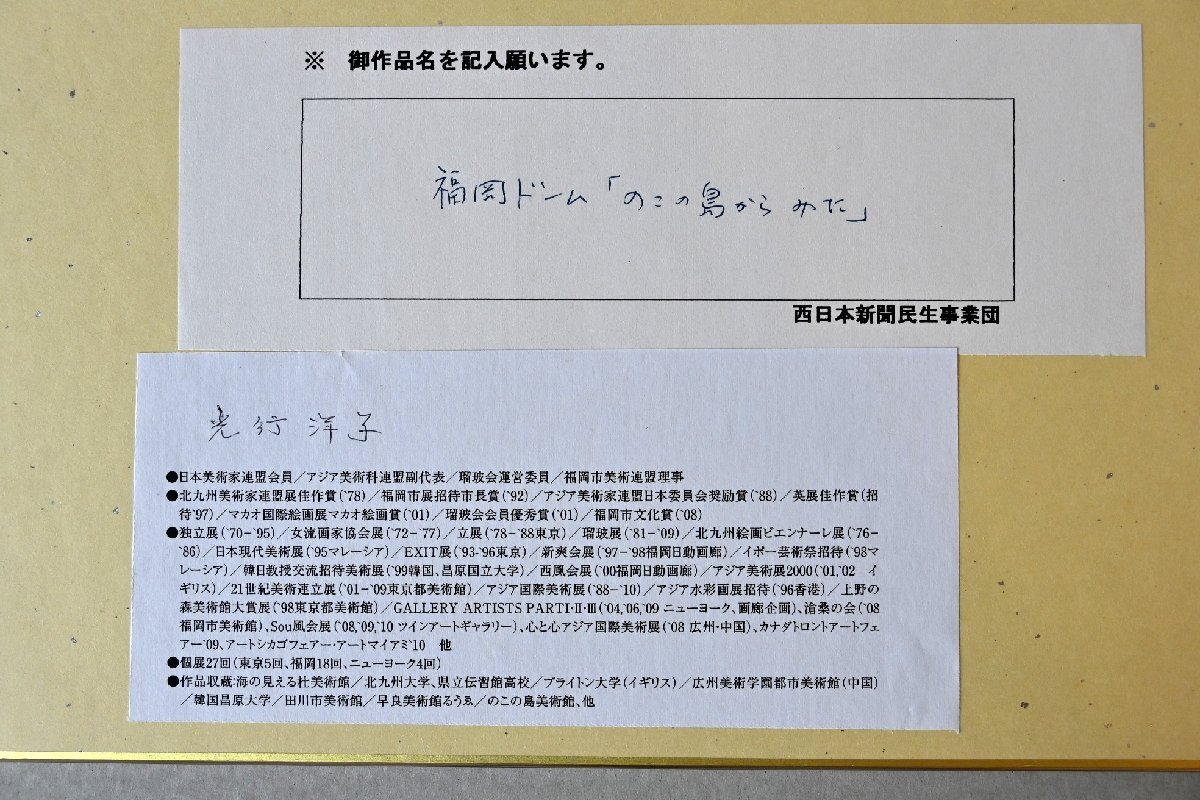 ※ 御作品名を記入願います。
福岡ドーム「のこの島からみた」
西日本新聞民生事業団
光行洋子
●日本美術家連盟会員／アジア美術科連盟副代表／瑠玻会運営委員／福岡市美術連盟理事
●北九州美術家連盟展佳作賞(`78)／福岡市展招待市長賞(`92)／アジア美術家連盟日本委員会奨励賞(`88)／英展佳作賞(招
待`97)／マカオ国際絵画展マカオ絵画賞(`01)／瑠玻会会員優秀賞(`01)／福岡市文化賞(`08)
●独立展(`70-`95)／女流画家協会展(`72-`77)／立展(`78-`88東京)／瑠玻展(`81-`09)／北九州絵画ビエンナーレ展(`76-
`86)／日本現代美術展(`95マレーシア)／EXIT展(`93-`96東京)／新爽会展(`97-`98福岡日動画廊)／イポー芸術祭招待(`98マ
レーシア)／韓日教授交流招待美術展(`99韓国、昌原国立大学)／西風会展(`00福岡日動画廊)／アジア美術展2000(`01,`02 イ
ギリス)／21世紀美術連立展(`01-`09東京都美術館)／アジア国際美術展(`88-`10)／アジア水彩画展招待(`96香港)／上野の
森美術館大賞展(`98東京都美術館)／GALLERY ARTISTS PARTI・II・III(`04,`06,`09 ニューヨーク、画廊企画)、滄桑の会(`08
福岡市美術館)、Sou風会展(`08,`09,`10 ツインアートギャラリー)、心と心アジア国際美術展(`08 広州・中国)、カナダトロントアートフェ
アー`09、アートシカゴフェアー・アートマイアミ`10 他
●個展27回(東京5回、福岡18回、ニューヨーク4回)
●作品収蔵:海の見える杜美術館／北九州大学、県立伝習館高校／ブライトン大学(イギリス)／広州美術学園都市美術館(中国)
／韓国昌原大学／田川市美術館／早良美術館るうゑ／のこの島美術館、他